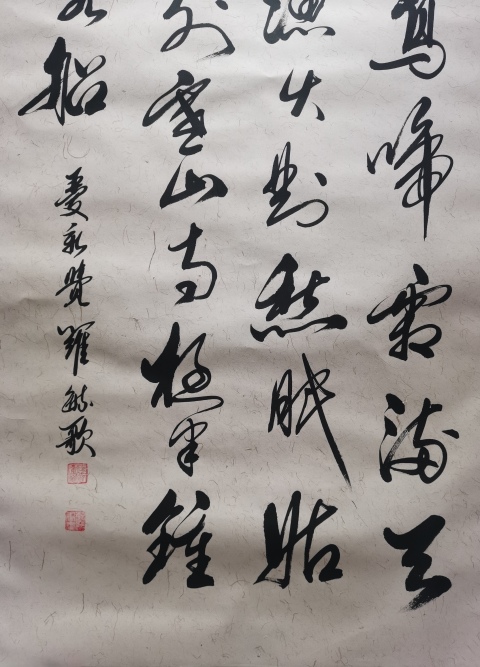 烏啼霜滿天
漁火對愁眠姑
外寒山寺夜半鐘
客船
愛新覺羅毓歌